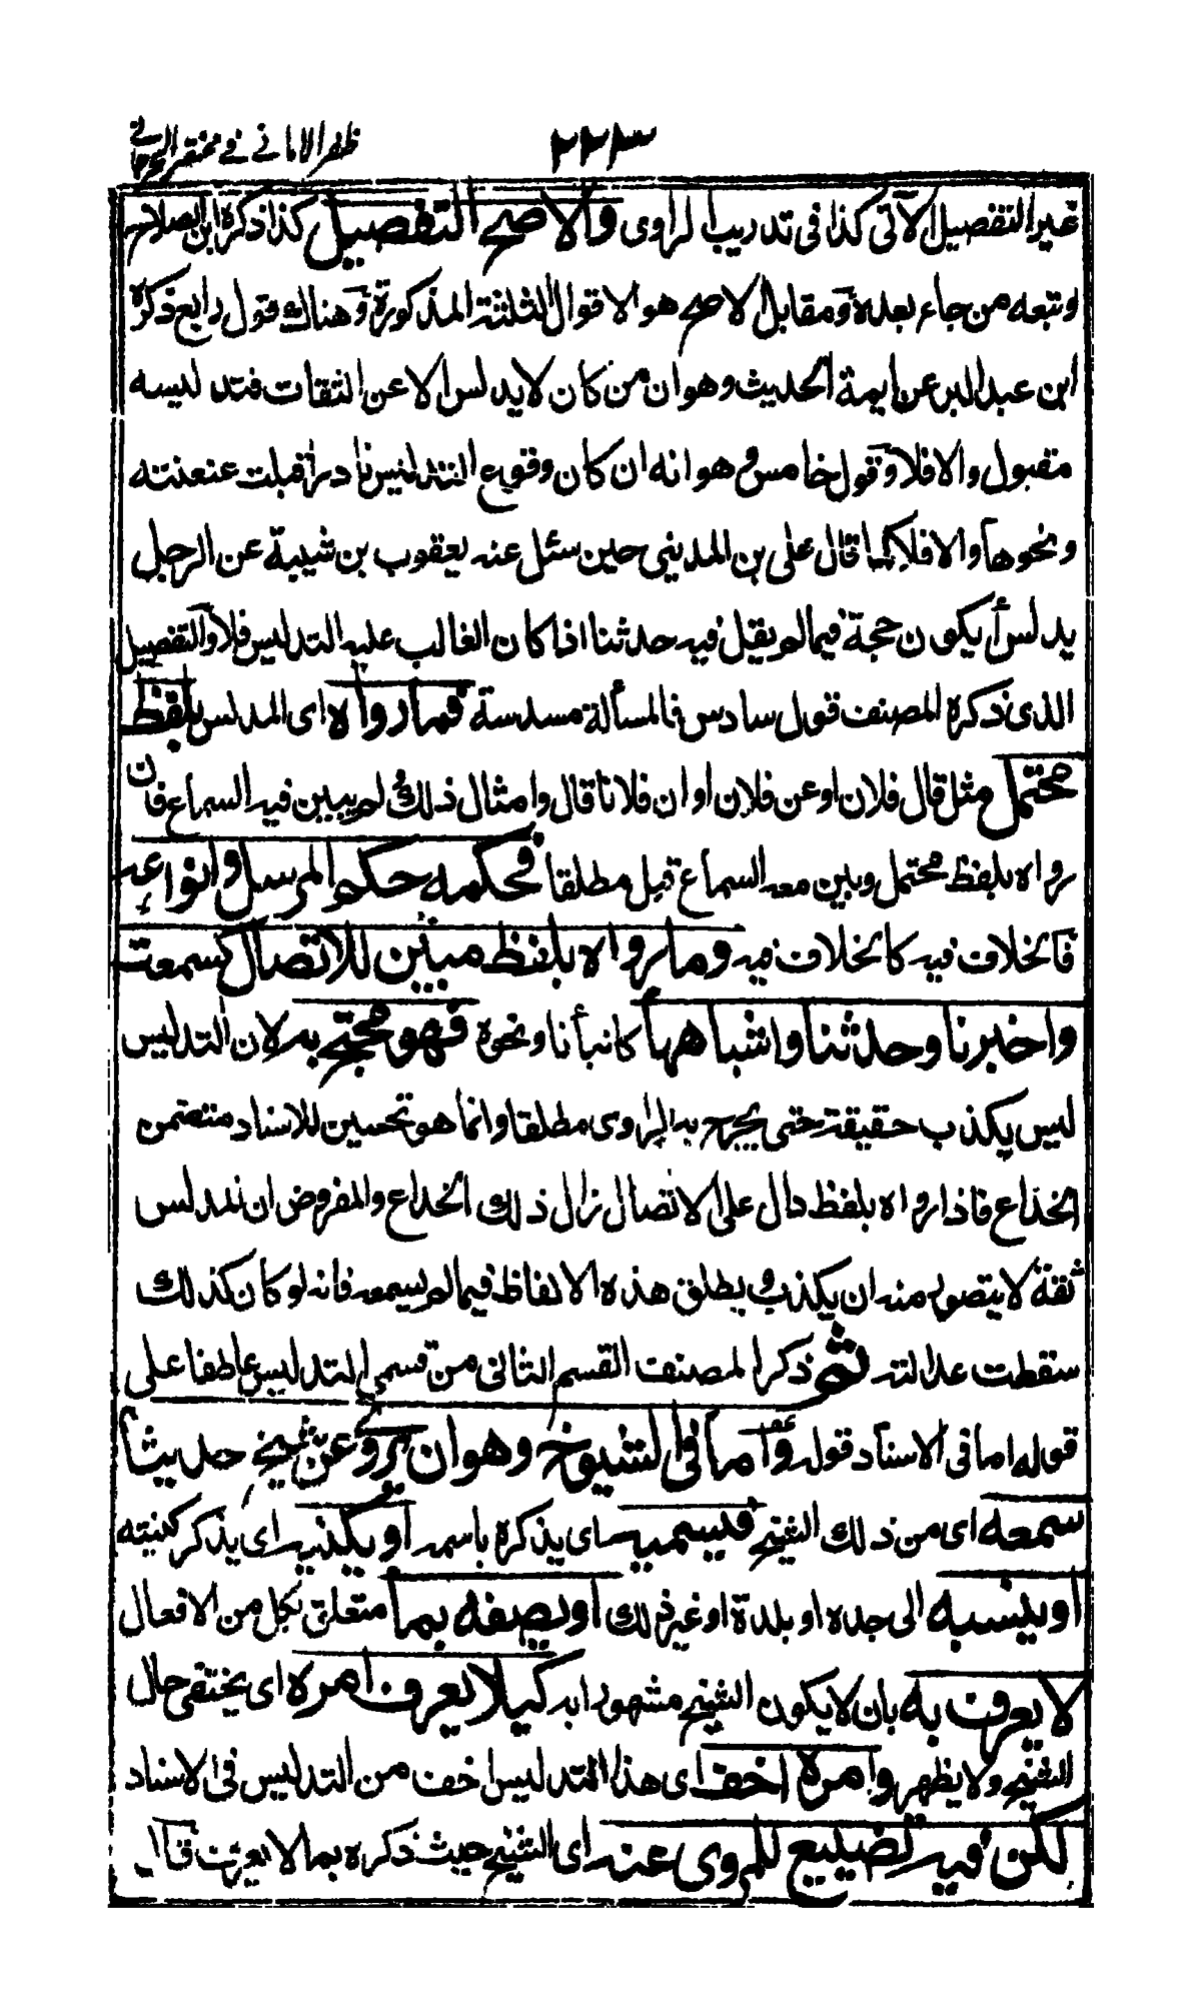 ٢٢٣ ظفر الامانے فے مختصر الجرجانے
غير التفصيل الآتى كذا فى تدريب الراوى والاصح التفصيل كذا ذكره ابن الصلاح
وتبعه من جاء بعده ومقابل الاصح هو الاقوال الثلثة المذكورة وهناك قول رابع ذكره
ابن عبد البر عن ايمة الحديث وهو ان من كان لا يدلس الا عن الثقات فتدليسه
مقبول والا فلا وقول خامس وهو انه ان كان وقوع التدليس نادرا قبلت عنعنته
ونحوها والا فلا كما قال على بن المدينى حين سئل عنه يعقوب بن شيبة عن الرجل
يدلس أيكون حجة فيما لم يقل فيه حدثنا اذا كان الغالب عليه التدليس فلا والتفصيل
الذى ذكره المصنف قول سادس فالمسألة مسدسة فما رواه اى المدلس بلفظ
محتمل مثل قال فلان او عن فلان او ان فلانا قال وامثال ذلك لم يبين فيه السماع فان
رواه بلفظ محتمل وبين معه السماع قبل مطلقا فحكمه حكم المرسل وانواعه
فالخلاف فيه كالخلاف فيه وما رواه بلفظ مبين للاتصال كسمعت
واخبرنا وحدثنا واشباهها كانبأنا ونحوه فهو محتج به لان التدليس
ليس بكذب حقيقة حتى يجرح به الراوى مطلقا وانما هو تحسين للاسناد متضمن
الخداع فاذا رواه بلفظ دال على الاتصال زال ذلك الخداع والمفروض ان المدلس
ثقة لا يتصور منه ان يكذب ويطلق هذه الالفاظ فيما لم يسمعه فانه لو كان كذلك
سقطت عدالته ثم ذكر المصنف القسم الثانى من قسمى التدليس عاطفا على
قوله اما فى الاسناد قوله واما فى الشيوخ وهو ان يروى عن شيخ حديثا
سمعه اى من ذلك الشيخ فيسميه اى يذكره باسمه او يكنيه اى يذكر كنيته
او ينسبه الى جده او بلدة او غير ذلك او يصفه بما متعلق بكل من الافعال
لا يعرف به بان لا يكون الشيخ مشهورا به كيلا يعرف امره اى يختفى حال
الشيخ ولا يظهر وامره اخف اى هذا التدليس اخف من التدليس فى الاسناد
لكن فيه تضييع للمروى عنه اى الشيخ حيث ذكره بما لا يعرف قال